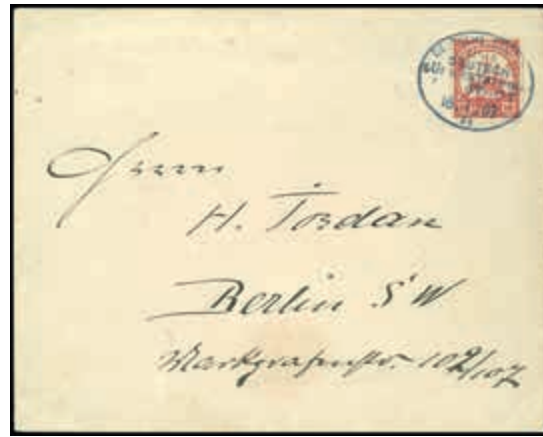 Herrn
H. Jordan
Berlin SW
Markgrafenstr. 102/107